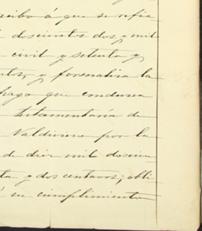 recibo á que se refie
 doscientos dos y mil
 civil y setenta y
 y formaliza la
pago que conducen
testamentaria de
Valdivieso por la
de diez mil doscien
ta y dos centavos; obli
en cumplimiento